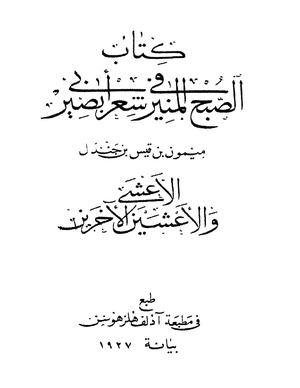 كتاب
الصبح المنير في شعر أبي بصير
ميمون بن قيس بن جندل
الأعشى
والأعشين الآخرين
طبع
في مطبعة آذلف هلزهوسن
بيانة ١٩٢٧